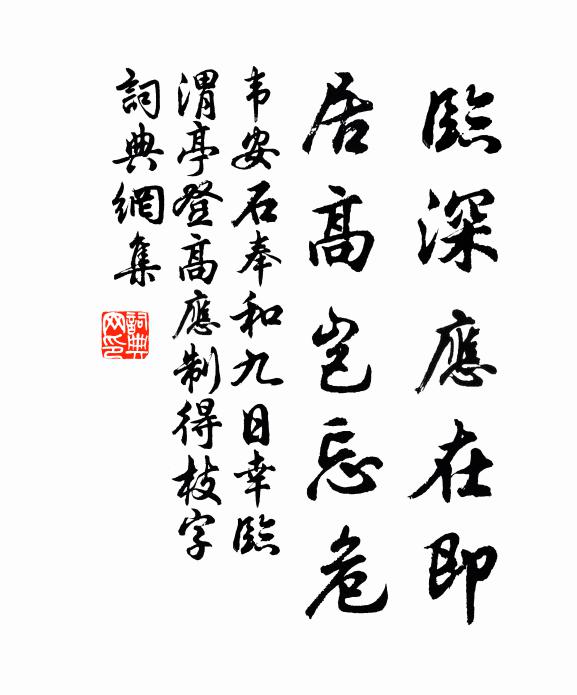 臨深應在即
居高豈忘危
韦安石奉和九日幸臨
渭亭登高應制得枝字
詞典網集
詞典
网印